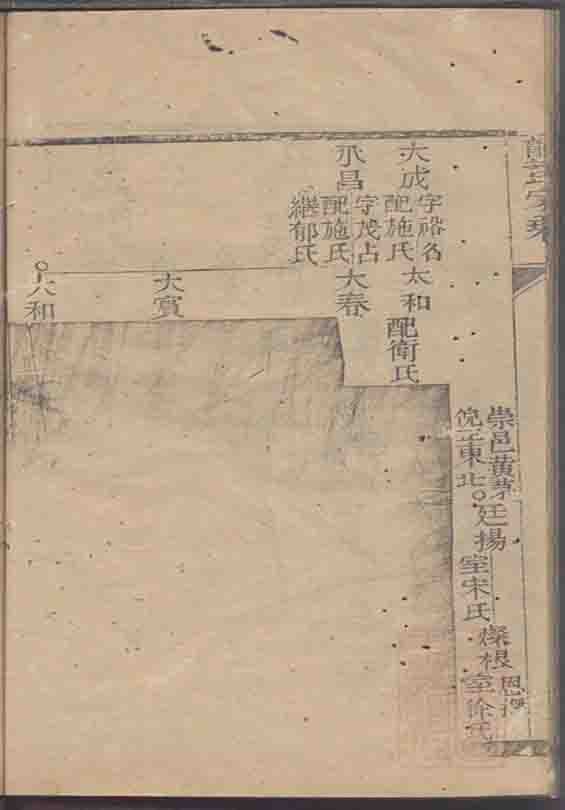 崇邑黃茅
倪三東北
廷揚
室宋氏
燦根
室徐氏
大成
字裕名
配施氏
太和
配衛氏
永昌
字茂占
配施氏
繼郁氏
大春
大賓